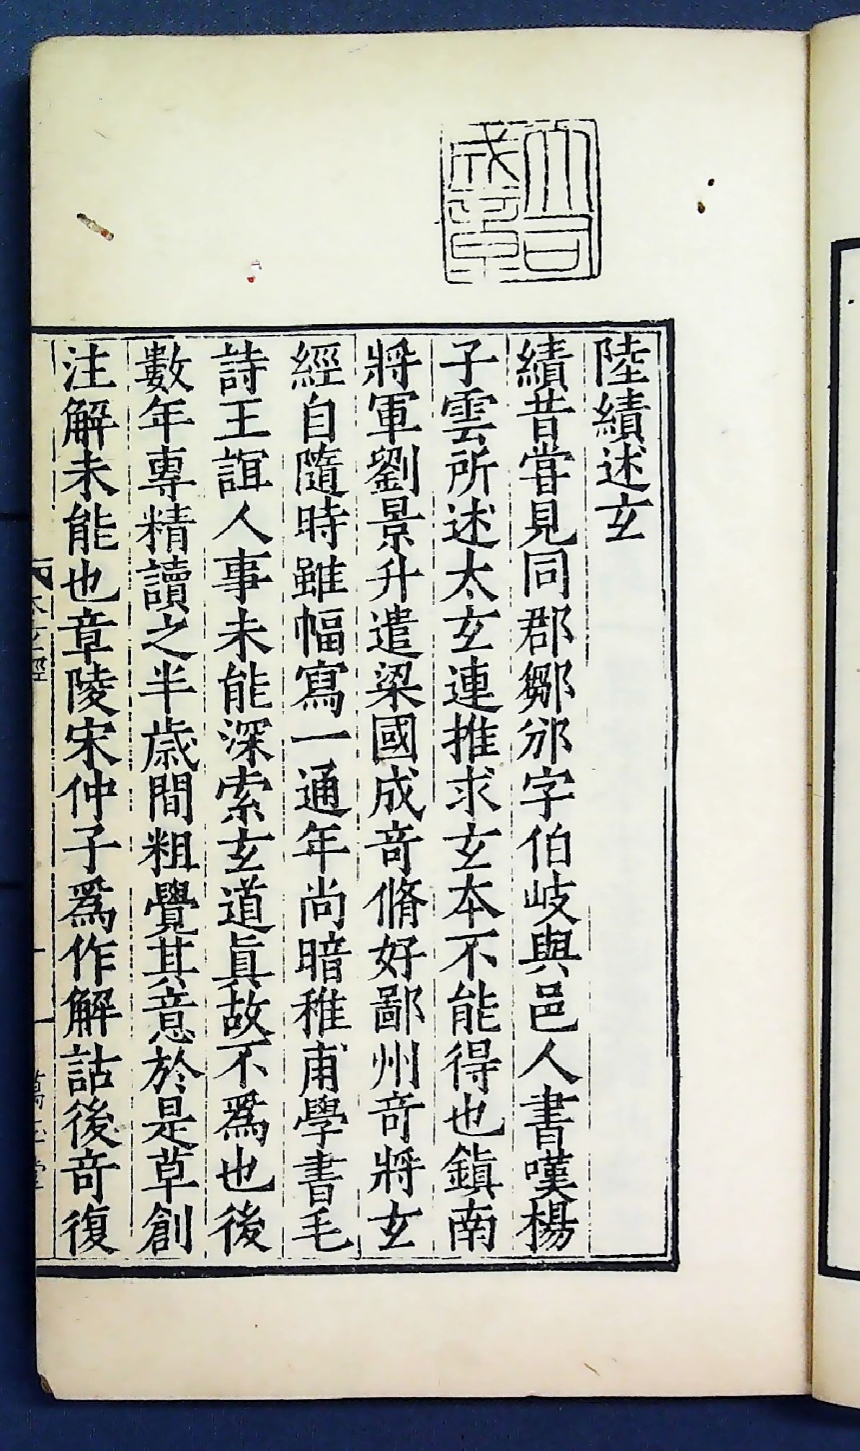 大司
成章
陸績述玄
績昔嘗見同郡鄒邠字伯岐與邑人書嘆楊
子雲所述太玄連推求玄本不能得也鎮南
將軍劉景升遣梁國成竒脩好鄙州竒將玄
經自隨時雖幅寫一通年尚暗稚甫學書毛
詩王誼人事未能深索玄道眞故不爲也後
數年專精讀之半歲間粗覺其意於是草創
注解未能也章陵宋仲子爲作解詁後竒復
太玄經
一
萬玉堂